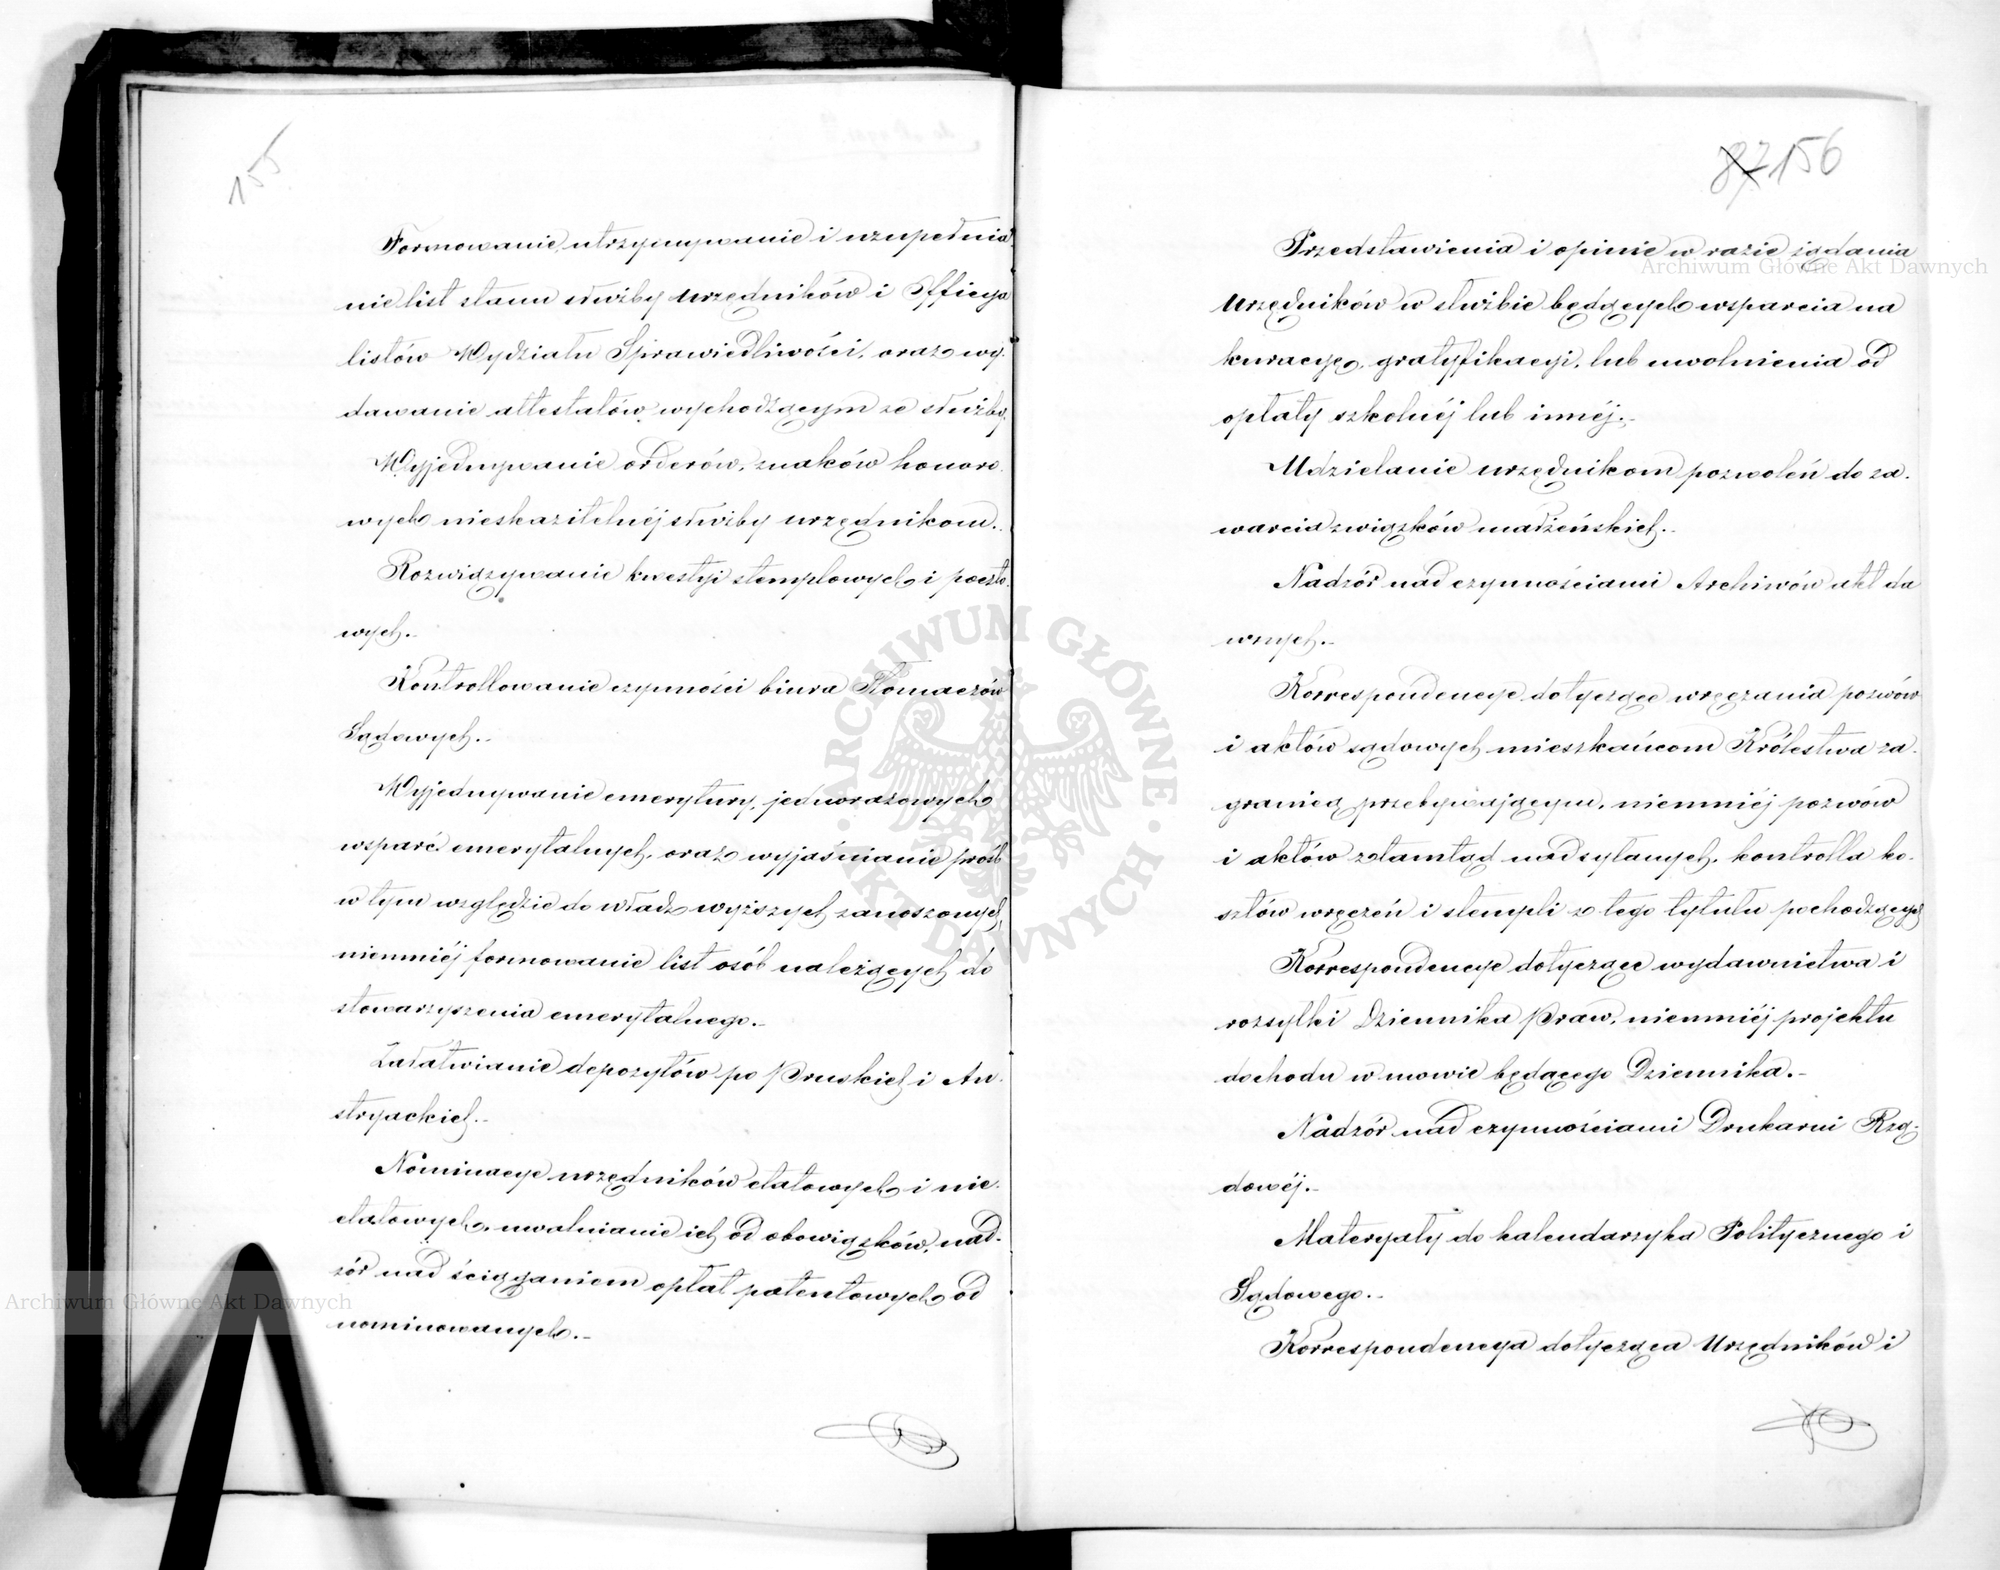 155
Formowanie, utrzymywanie i uzupełnia
nie list stanu służby urzędników i Officya
listów Wydziału Sprawiedliwości, oraz wy-
dawanie attestatów wychodzącym ze służby.
Wyjednywanie orderów, znaków honoro-
wych nieskazitelnéj służby urzędnikom.-
Rozwiązywanie kwestyi stemplowych i poczto-
wych.-
Kontrollowanie czynności biura Tłomaczów
Sądowych.-
Wyjednywanie emerytury, jednorazowych
wsparć emerytalnych, oraz wyjaśnianie próśb
w tym względzie do władz wyższych zanoszonych,
niemniéj formowanie list osób należących do
stowarzyszenia emerytalnego.-
Załatwianie depozytów po Pruskich i Au-
stryackich.-
Nominacye urzędników etatowych i nie-
etatowych, uwalnianie ich od obowiązków, nad-
zór nad ściąganiem opłat patentowych od
nominowanych.-
87 156
Przedstawienia i opinie w razie żądania
urzędników w służbie będących wsparcia na
kuracyę, gratyfikacyi, lub uwolnienia od
opłaty szkolnéj lub innéj.-
Udzielanie urzędnikom pozwoleń do za-
warcia związków małżeńskich.-
Nadzór nad czynnościami Archiwów akt da
wnych.-
Korrespondencye dotyczące wręczania pozwów
i aktów sądowych mieszkańcom Królestwa za-
granicą przebywającym, niemniéj pozwów
i aktów ztamtąd nadsyłanych, kontrolla ko-
sztów wręczeń i stempli z tego tytułu pochodzących
Korrespondencye dotyczące wydawnictwa i
rozsyłki Dziennika Praw, niemniéj projektu
dochodu w mowie będącego Dziennika.-
Nadzór nad czynnościami Drukarni Rzą-
dowéj.-
Materyały do kalendarzyka Politycznego i
Sądowego.-
Korrespondencya dotycząca Urzędników i
Archiwum Główne Akt Dawnych
ARCHIWUM GŁÓWNE · AKT DAWNYCH ·
Archiwum Główne Akt Dawnych